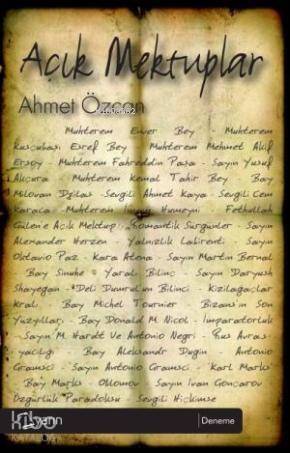 Açık Mektuplar
Ahmet Özcan
Muhterem Enver Bey - Muhterem
Kuşçubaşı Eşref Bey - Muhterem Mehmet Akif
Ersoy - Muhterem Fahreddin Paşa - Sayın Yusuf
Akçura - Muhterem Kemal Tahir Bey - Bay
Milovan Djilas - Sevgili Ahmet Kaya - Sevgili Cem
Karaca - Muhterem Humeyni - Fethullah
Gülen'e Açık Mektup - Romantik Sürgünler - Sayın
Alexander Herzen - Yalnızlık Labirenti - Sayın
Oktavio Paz - Kara Atena - Sayın Martin Bernal
- Bay Sinuhe - Yaralı Bilinç - Sayın Daryush
Shayegan - Deli Dumrul'un Bilinci - Kızılağaçlar
Kralı - Bay Michel Tournier - Bizans'ın Son
Yüzyılları - Bay Donald M. Nicol - İmparatorluk
- Sayın M. Hardt Ve Antonio Negri - Rus Avras-
yacılığı - Bay Aleksandr Dugin - Antonio
Gramsci - Sayın Antonio Gramsci - Karl Marks
- Bay Marks - Oblomov - Sayın Ivan Gonçarov
Özgürlük Paradoksu - Sevgili Hiçkimse
Deneme